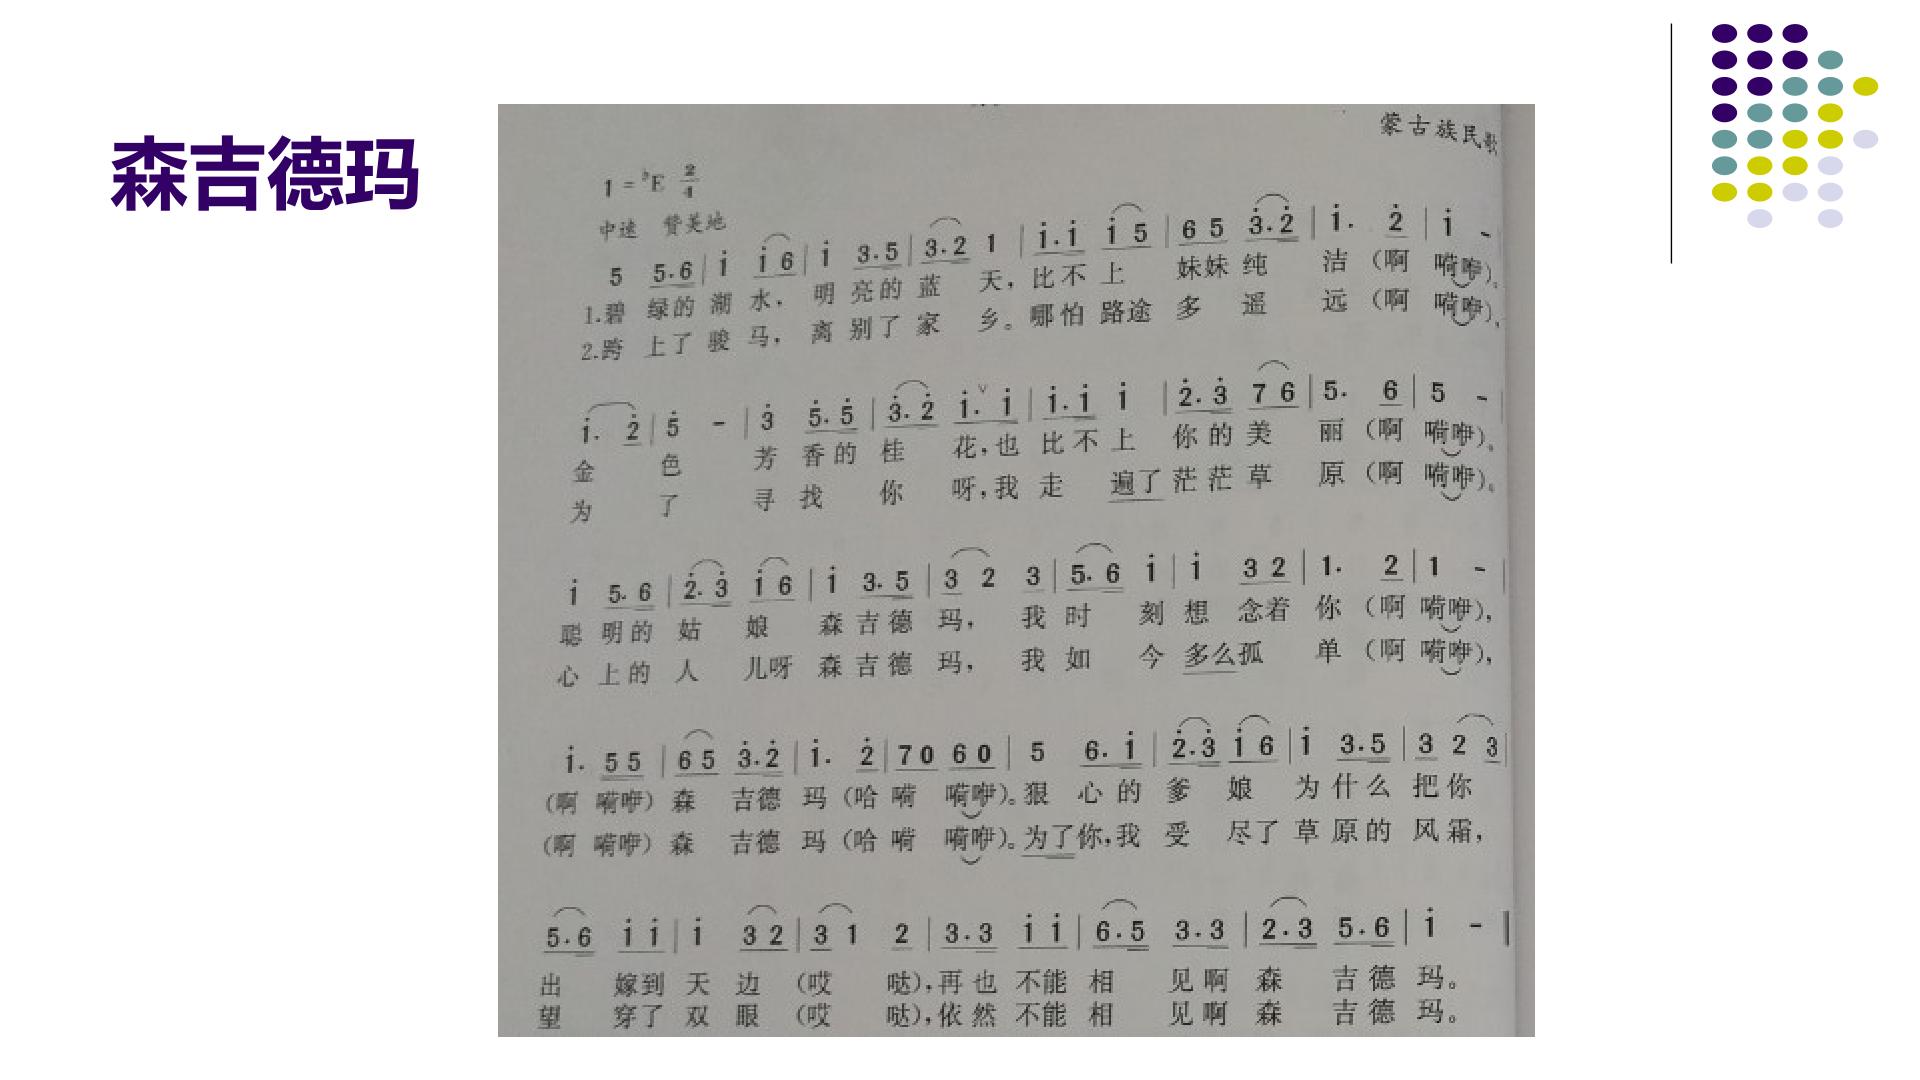 森吉德玛
蒙古族民歌
1 = ♭E 2/4
中速 赞美地
5 5·6 | i i 6 | i 3·5 | 3·2 1 | i·i i 5 | 6 5 3·2 | i· 2 | i - |
1.碧 绿的 湖 水， 明 亮的 蓝 天，比不上 妹妹 纯 洁（啊 嗬咿）。
2.跨 上了 骏 马， 离 别了 家 乡。哪怕 路途 多 遥 远（啊 嗬咿），
i· 2 | 5 - | 3 5·5 | 3·2 i· i | i·i i | 2·3 7 6 | 5· 6 | 5 - |
金 色 芳 香的 桂 花，也 比不上 你的美 丽（啊 嗬咿）。
为 了 寻 找 你 呀，我 走 遍了 茫茫 草 原（啊 嗬咿）。
i 5·6 | 2·3 i 6 | i 3·5 | 3 2 3 | 5·6 i | i 3 2 | 1· 2 | 1 - |
聪 明的 姑 娘 森吉德 玛， 我 时 刻 想 念着 你（啊 嗬咿），
心 上的 人 儿呀 森吉德 玛， 我 如 今 多么孤 单（啊 嗬咿），
i· 5 5 | 6 5 3·2 | i· 2 | 7 0 6 0 | 5 6·i | 2·3 i 6 | i 3·5 | 3 2 3 |
（啊 嗬咿）森 吉德 玛（哈 嗬 嗬咿）。狠 心的 爹 娘 为什么 把你
（啊 嗬咿）森 吉德 玛（哈 嗬 嗬咿）。为了你，我 受 尽了 草原的 风霜，
5·6 i i | i 3 2 | 3 1 2 | 3·3 i i | 6·5 3·3 | 2·3 5·6 | i - |
出 嫁到 天 边（哎 哒），再也 不能 相 见啊 森 吉德 玛。
望 穿了 双 眼（哎 哒），依然 不能 相 见啊 森 吉德 玛。